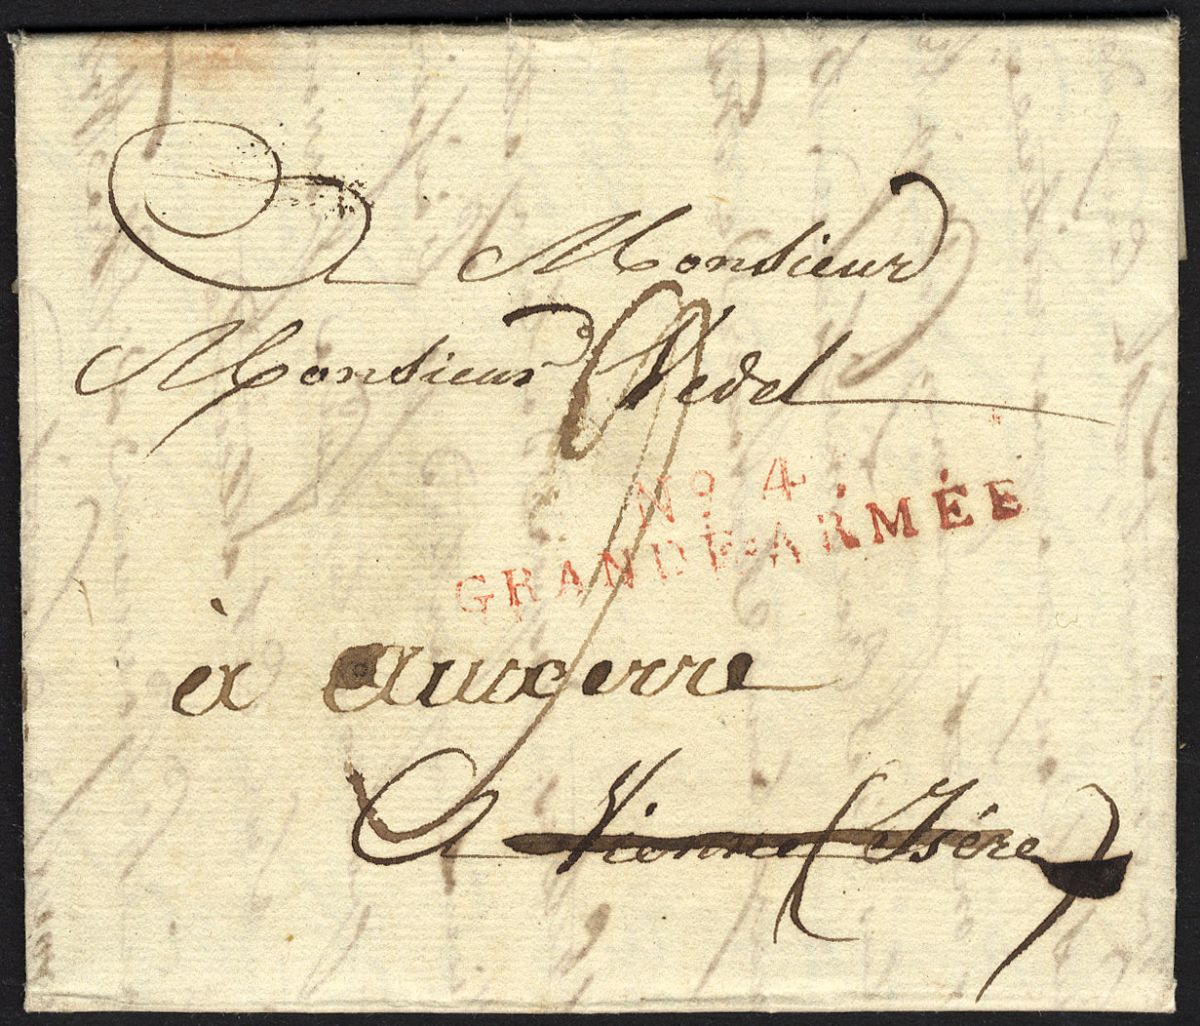 A Monsieur
Monsieur Vedel
No 4.
GRANDE-ARMÉE
à auxerre
A Vienne (Isére)